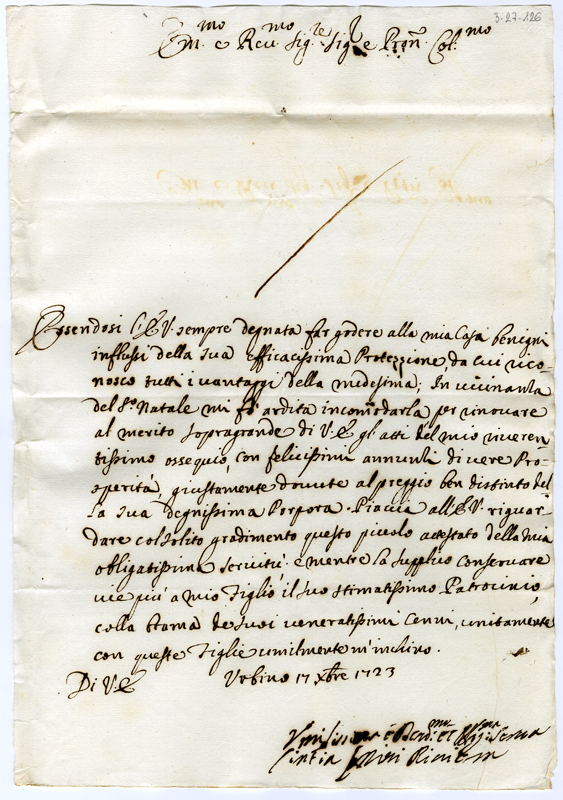 3-27-126
Em.mo e Reu.mo Sig.re Sig.r e Pron. Col.mo
Essendosi l'E.V. sempre degnata far godere alla mia Casa benigni
influssi della sua efficacissima Protezzione, da cui rico-
nosco tutti i uantaggi della medesima; In uicinanza
del S.o Natale mi fò ardita incomodarla per rinouare
al merito sopragrande di V.E. gl'atti del mio riueren
tissimo ossequio, con felicissimi annunzi di uere Pro-
sperità, giustamente douute al preggio ben distinto del
la sua degnissima Porpora. Piaccia all'E.V. riguar
dare col solito gradimento questo picciolo attestato della mia
obligatissima seruitù; e mentre la supplico conseruare
uie più a mio Figlio il suo stimatissimo Patrocinio,
colla stama de suoi ueneratissimi Cenni, unitamente
con queste Figlie umilmente m'inchino.
Di V.E. Urbino 17 Xbre 1723
Vmilissima e Deu.ma et Obl.ma Serua
Cintia